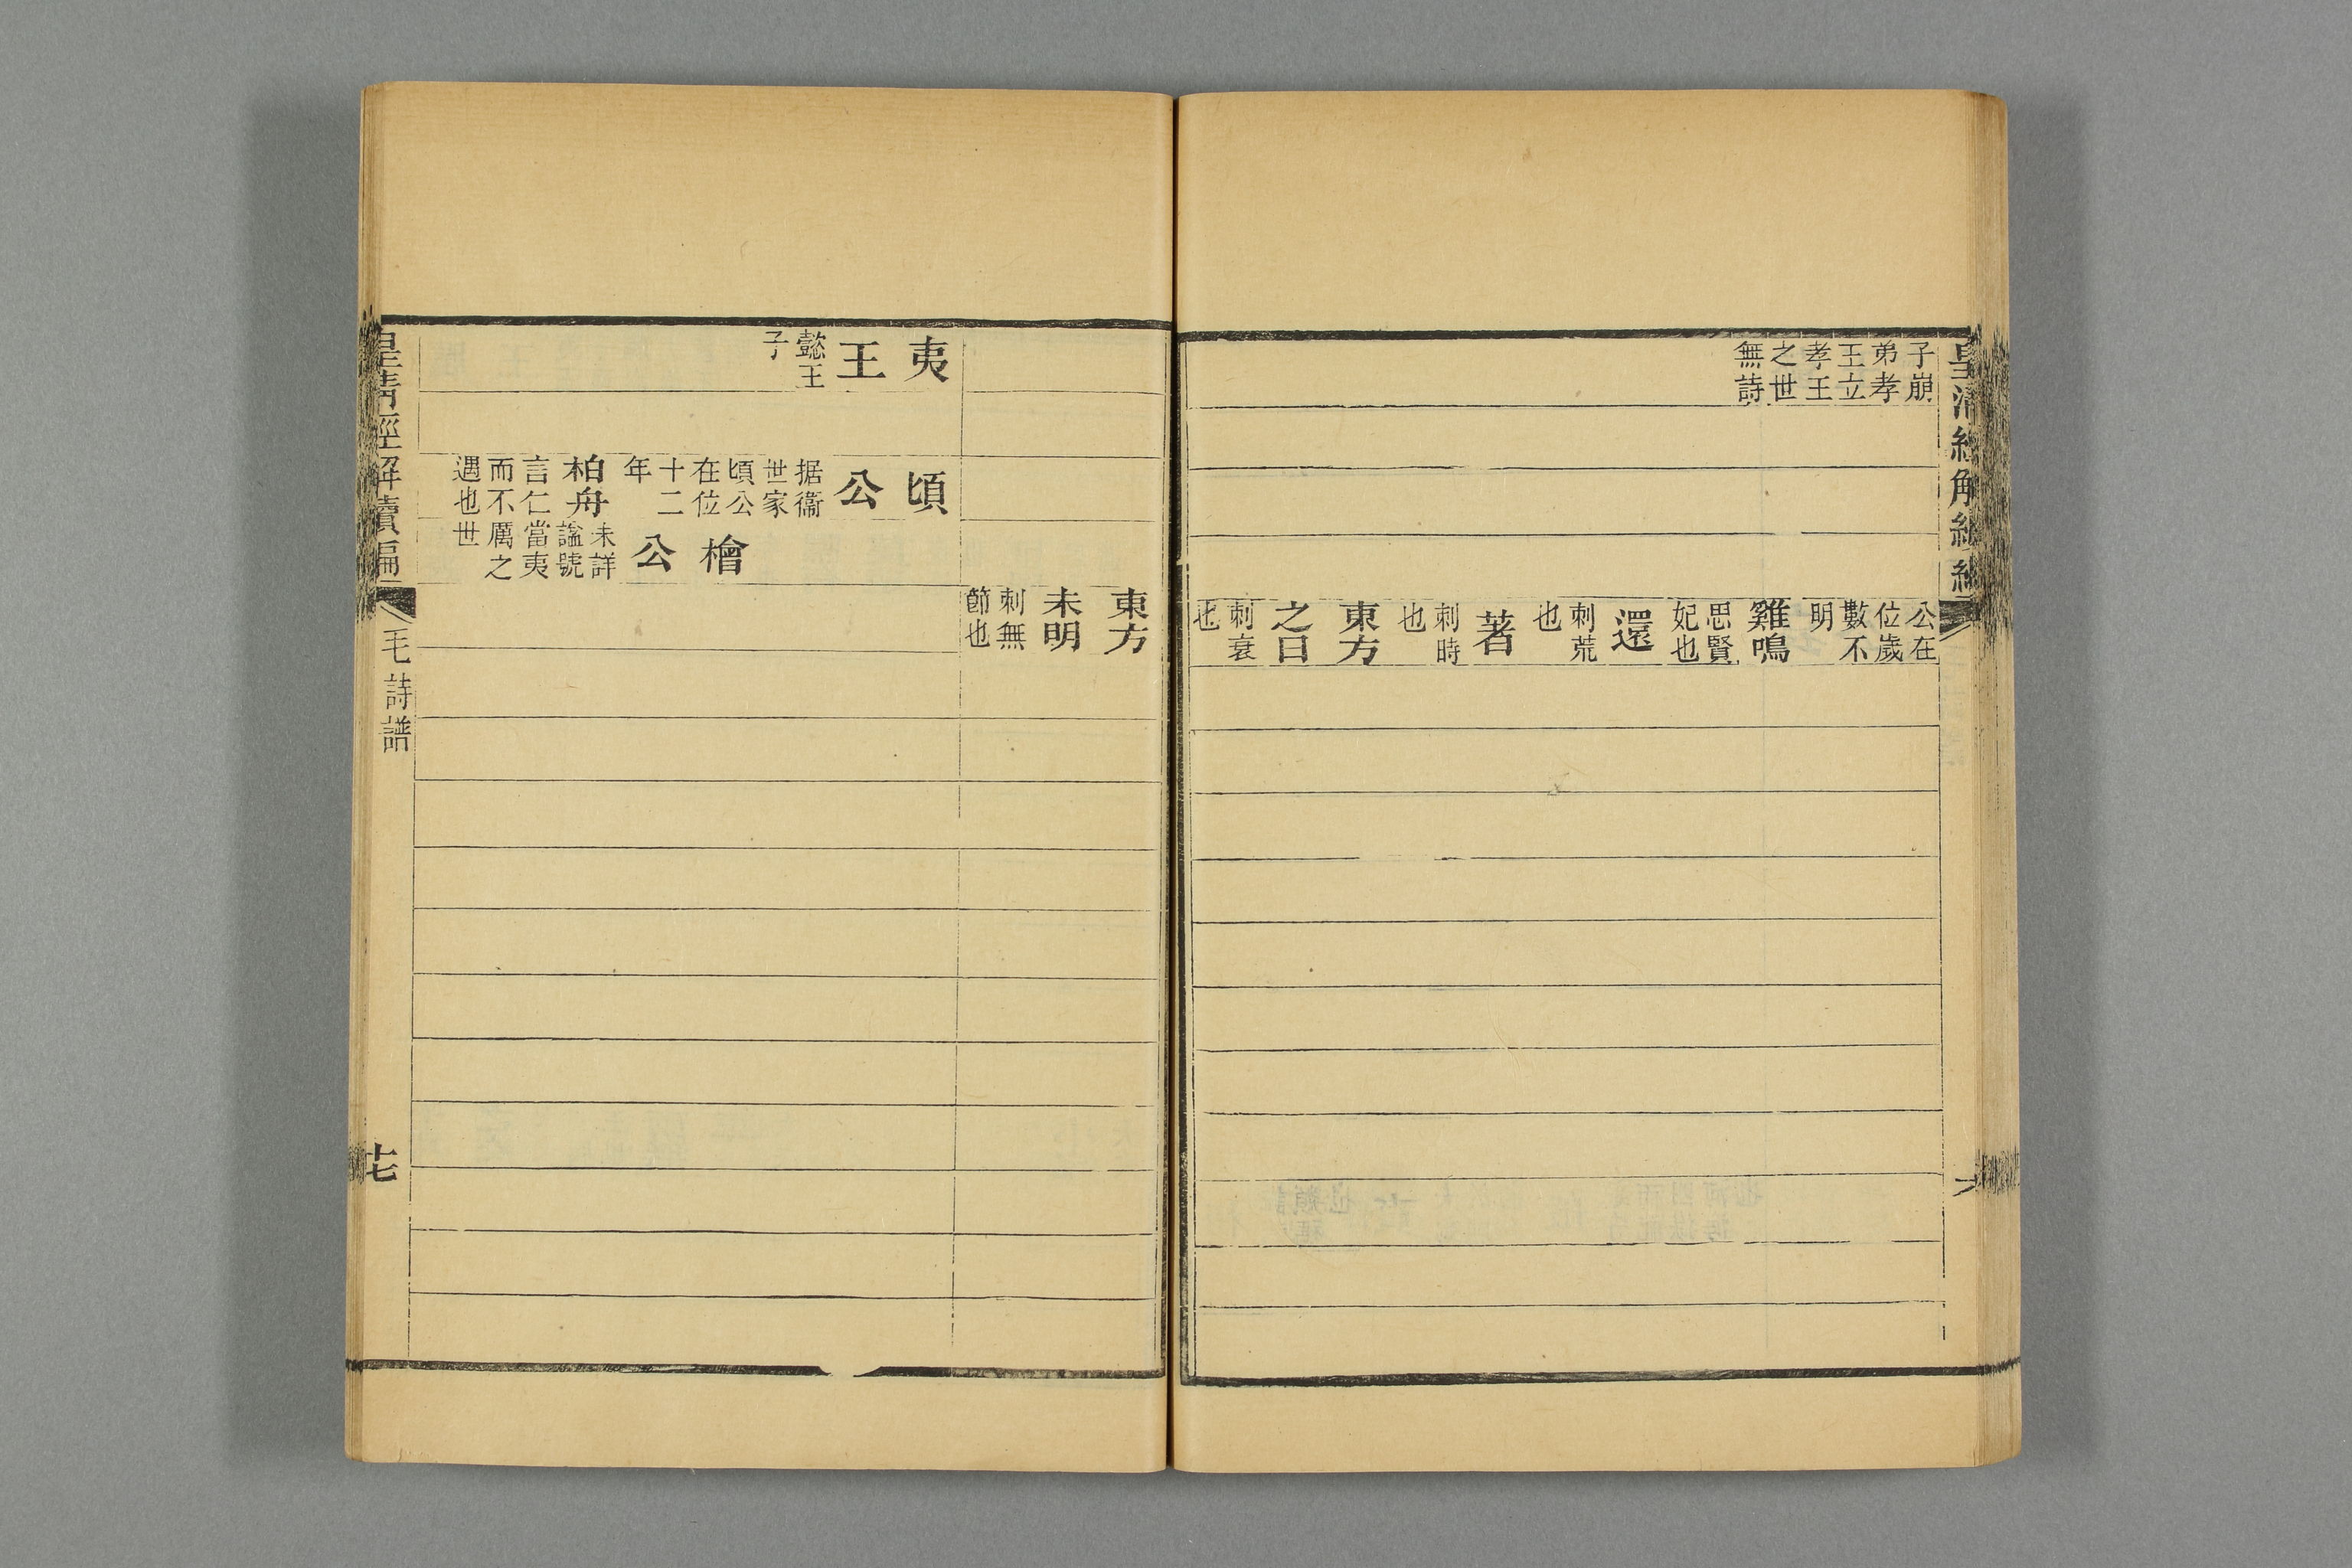 皇清經解續編
子崩
弟孝
王立
孝王
之世
無詩
公在
位歲
數不
明
雞鳴
思賢
妃也
還
刺荒
也
著
刺時
也
東方
之日
刺衰
也
東方
未明
刺無
節也
夷
王
懿王
子
頃
公
据衞
世家
頃公
在位
十二
年
柏舟
言仁
而不
遇也
檜
公
未詳
謚號
當夷
厲之
世
皇清經解續編
毛詩譜
十七